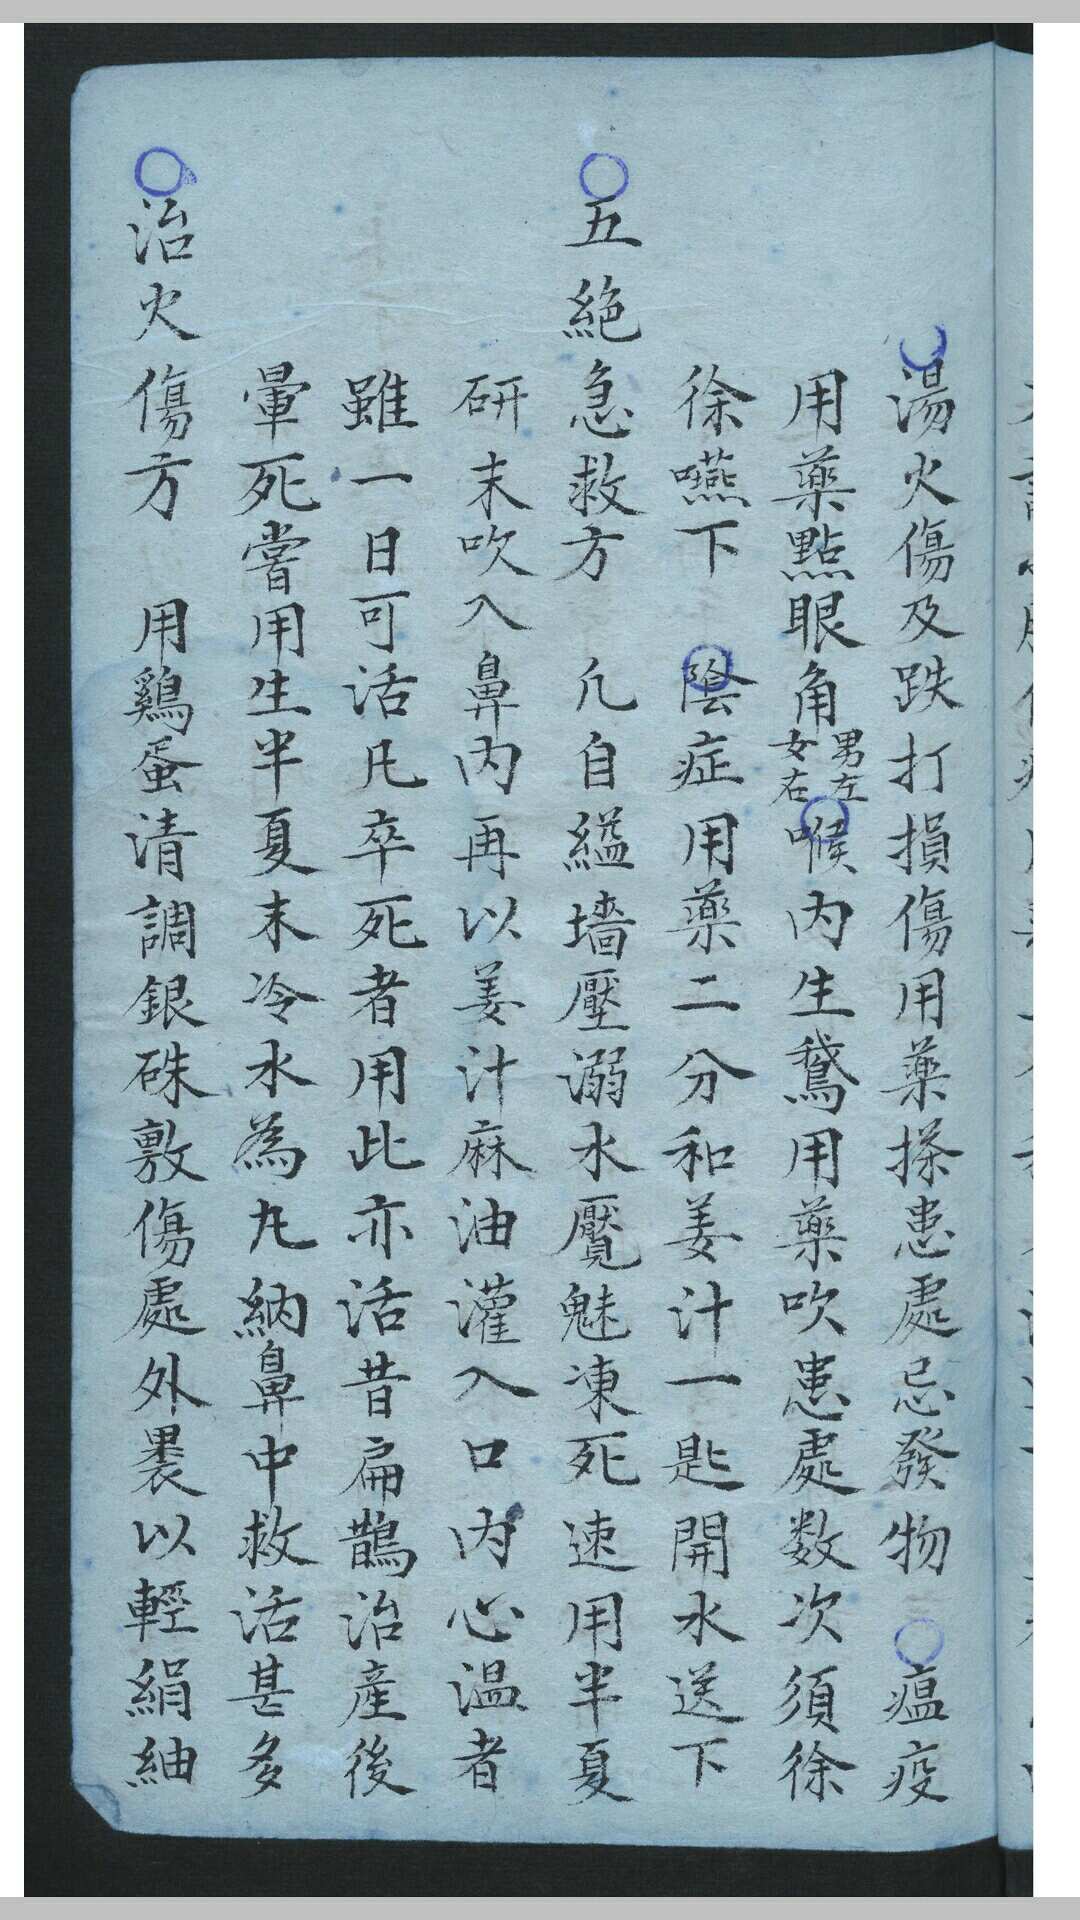 湯火傷及跌打損傷用藥搽患處忌發物 瘟疫
用藥點眼角男左女右喉內生鵝用藥吹患處数次須徐
徐嚥下 陰症用藥二分和姜汁一匙開水送下
五絕急救方 凢自縊墻壓溺水魘魅凍死速用半夏
研末吹入鼻內再以姜汁麻油灌入口內心温者
雖一日可活凡卒死者用此亦活昔扁鵲治產後
暈死嘗用生半夏末冷水為丸納鼻中救活甚多
治火傷方 用鷄蛋清調銀硃敷傷處外裹以輕絹紬